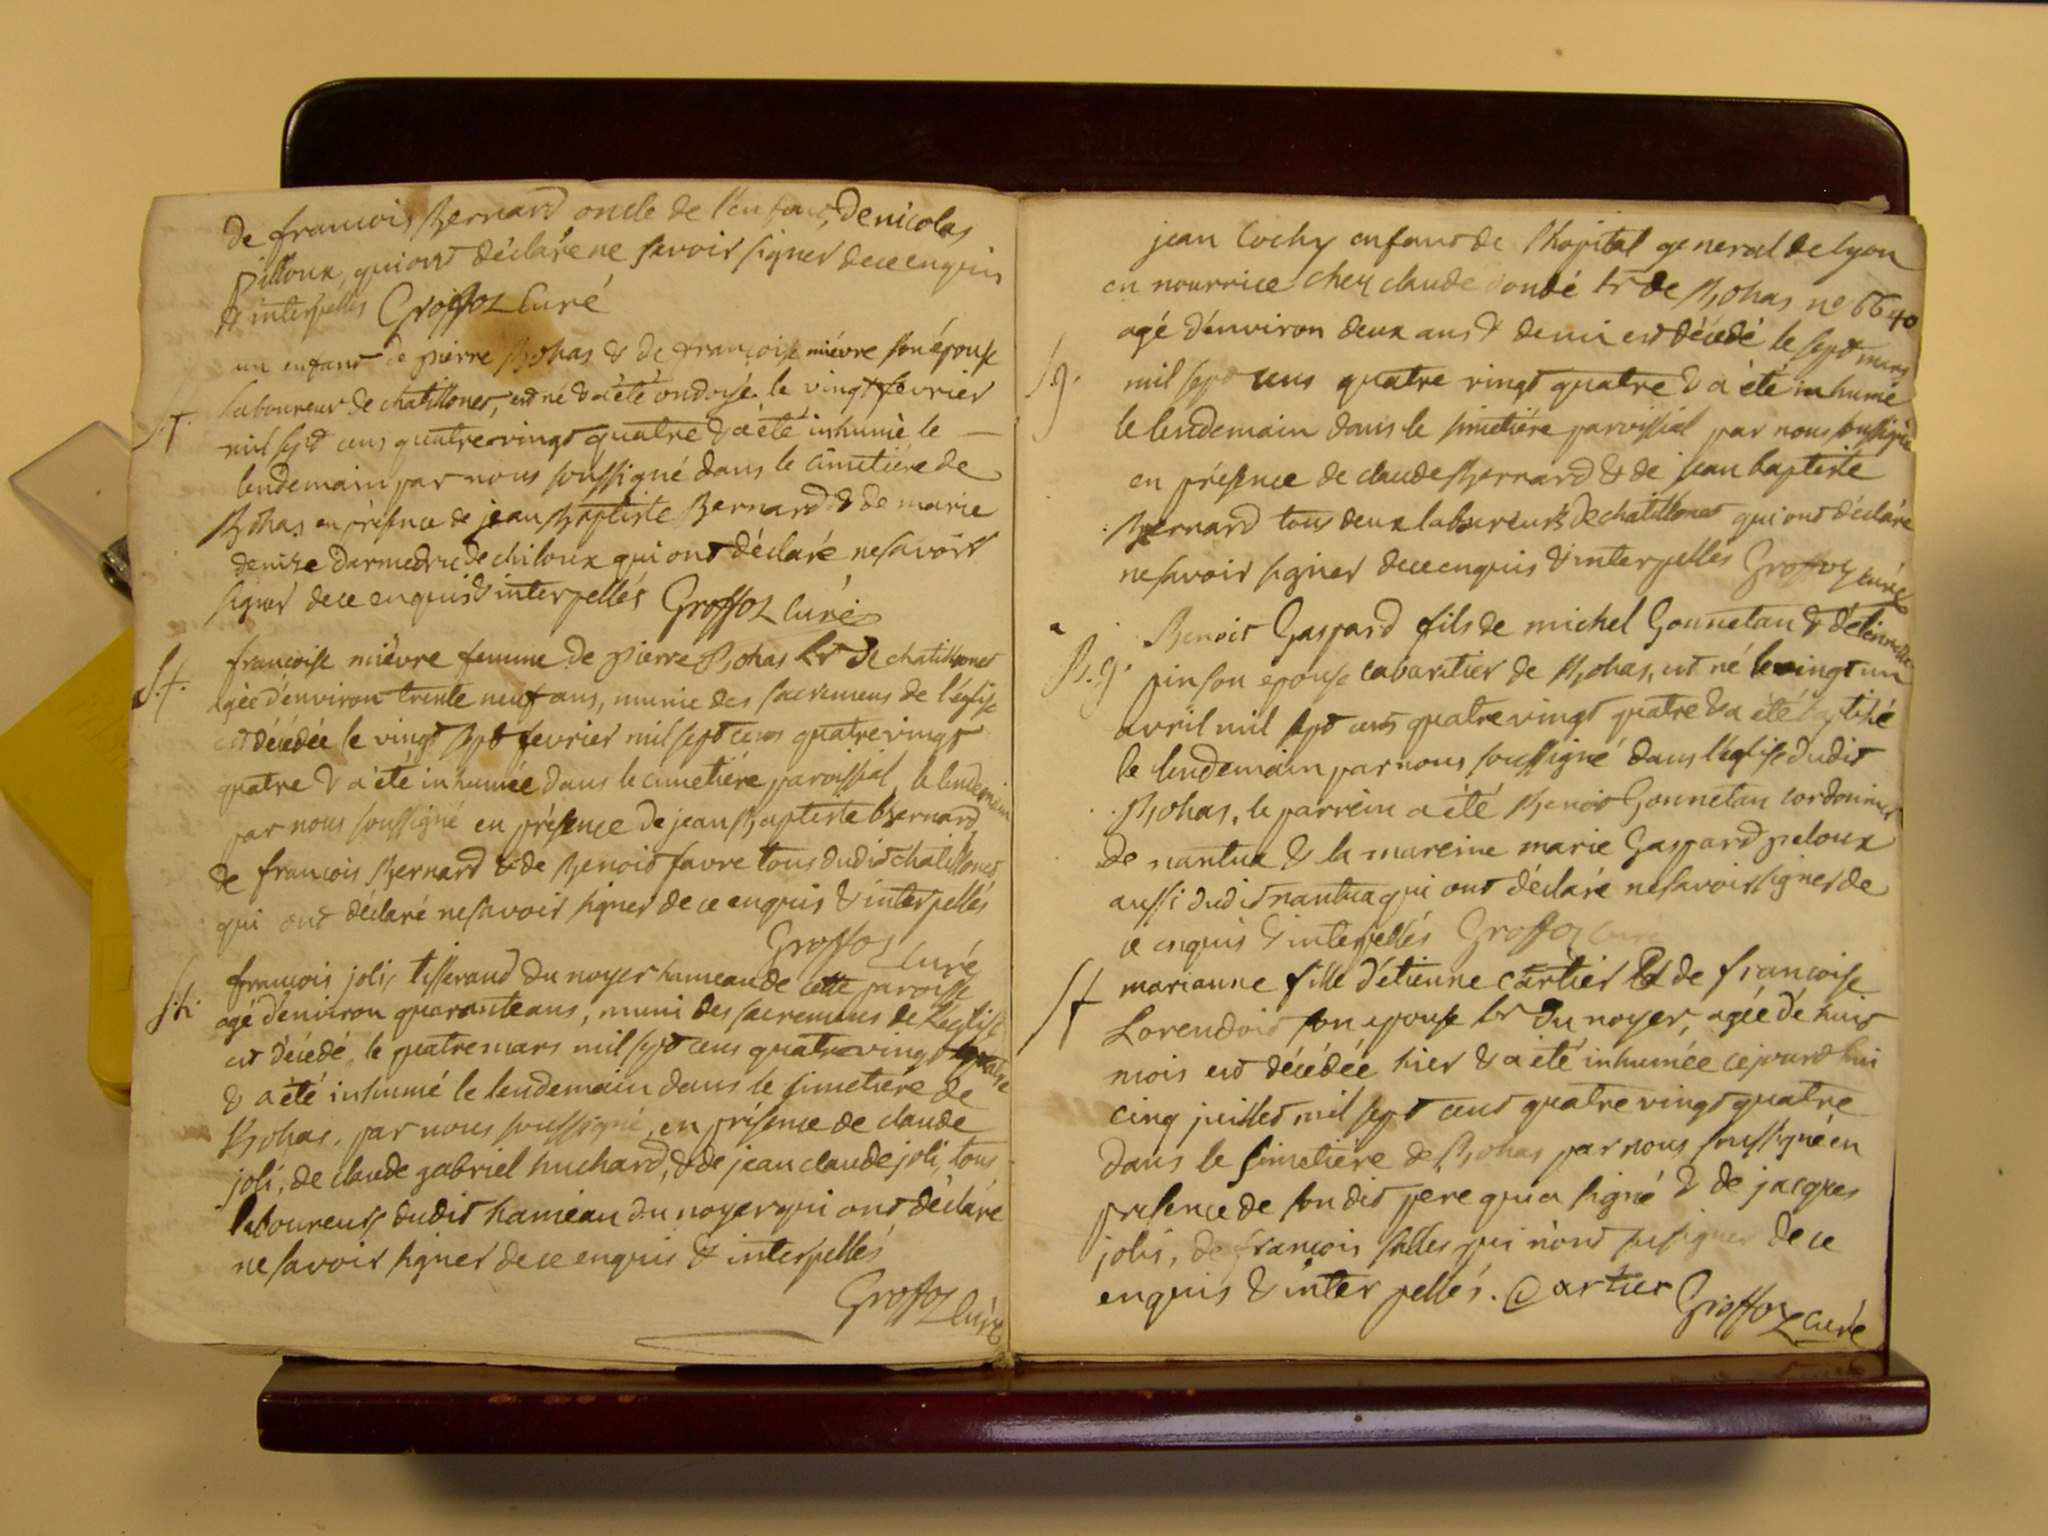 de francois Bernard oncle de l'enfant, de nicolas
pilloux, qui ont déclaré ne savoir signer de ce enquis
& interpellés Groffoz Curé
un enfant de pierre Bohas & de françoise mièvre son épouse
laboureur de chatillonet, est né & a été ondoyé le vingt fevrier
mil sept cens quatre vingt quatre & a été inhumé le
lendemain par nous soussigné dans le cimetiére de
Bohas en présence de jean Baptiste Bernard & de marie
denize de chiloux qui ont déclaré ne savoir
signer de ce enquis & interpellés Groffoz Curé
S.f.
françoise mièvre femme de pierre Bohas Lr de chatillonet
agée d'environ trente neuf ans, munie des sacremens de l'église
est décédée le vingt sept fevrier mil sept cens quatre vingt
quatre & a été inhumée dans le cimetiére paroissial le lendemain
par nous soussigné en présence de jean Baptiste Bernard
de francois Bernard & de Benoit favre tous dudit chatillonet
qui ont déclaré ne savoir signer de ce enquis & interpellés
Groffoz Curé
francois joli, tisserand du noyer hameau de cette paroisse
agé d'environ quarante ans, muni des sacremens de l'eglise
est décédé le quatre mars mil sept cens quatre vingt quatre
& a été inhumé le lendemain dans le simetiére de
Bohas, par nous soussigné, en présence de claude
joli, de claude gabriel huchard, & de jean claude joli, tous
laboureurs dudit hameau du noyer qui ont déclaré
ne savoir signer de ce enquis & interpellés
Groffoz Curé
jean Cochy enfant de l'hopital general de lyon
en nourrice chez claude dondé Lr de Bohas no 6640
agé d'environ deux ans & demi est décédé le sept mars
S.g.
mil sept cens quatre vingt quatre & a été inhumé
le lendemain dans le simetiére paroissial par nous soussigné
en présence de claude Bernard & de jean baptiste
Bernard tous deux laboureurs de chatillonet qui ont déclaré
ne savoir signer de ce enquis & interpellés Groffoz curé
Benoit Gaspard fils de michel Gonnetan & d'étiennette
B.g.
pin son epouse cabaretier de Bohas, est né le vingt un
avril mil sept cens quatre vingt quatre & a été baptisé
le lendemain par nous soussigné dans l'église dudit
Bohas, le parrein a été Benoit Gonnetan cordonnier
de nantua & la mareine marie Gaspard peloux
aussi dudit nantua qui ont déclaré ne savoir signer de
ce enquis & interpellés Groffoz Curé
Sf
marianne fille d'étienne cartier & de francoise
Lorendoit son epouse Lr du noyer, agée de huit
mois est décédée hier & a été inhumée ce jourd'hui
cinq juillet mil sept cent quatre vingt quatre
dans le simetiére de Bohas par nous soussigné en
présence de son dit pere qui a signé & de jacques
joli, de francois salles qui n'ont su signer de ce
enquis & interpellés. Cartier Groffoz Curé